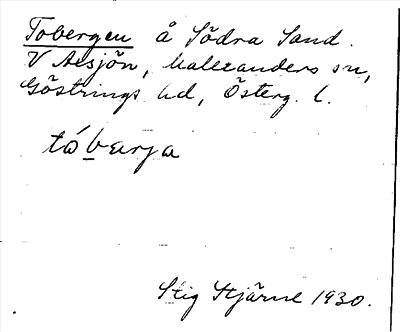 Tobergen å Södra Sand.
V Aesjön, Malexanders sn,
Göstrings hd, Österg. l.
tó bærja
Stig Stjärne 1930.